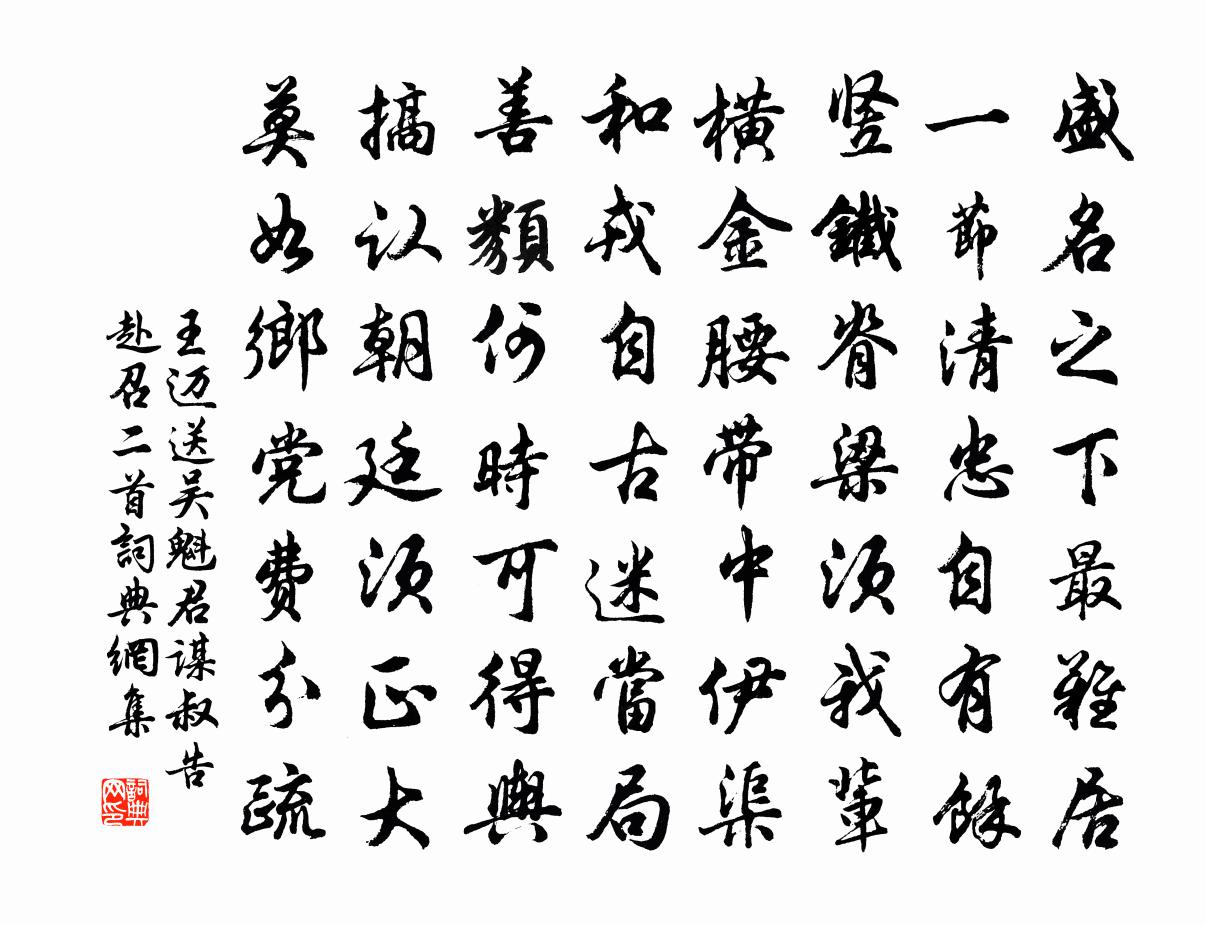 盛名之下最難居
一節清忠自有餘
豎鐵脊梁須我輩
橫金腰帶中伊渠
和戎自古迷當局
善類何時可得輿
搞認朝廷須正大
莫如鄉党費分疏
王迈送吴魁君謀叔告
赴召二首詞典網集
詞典网印